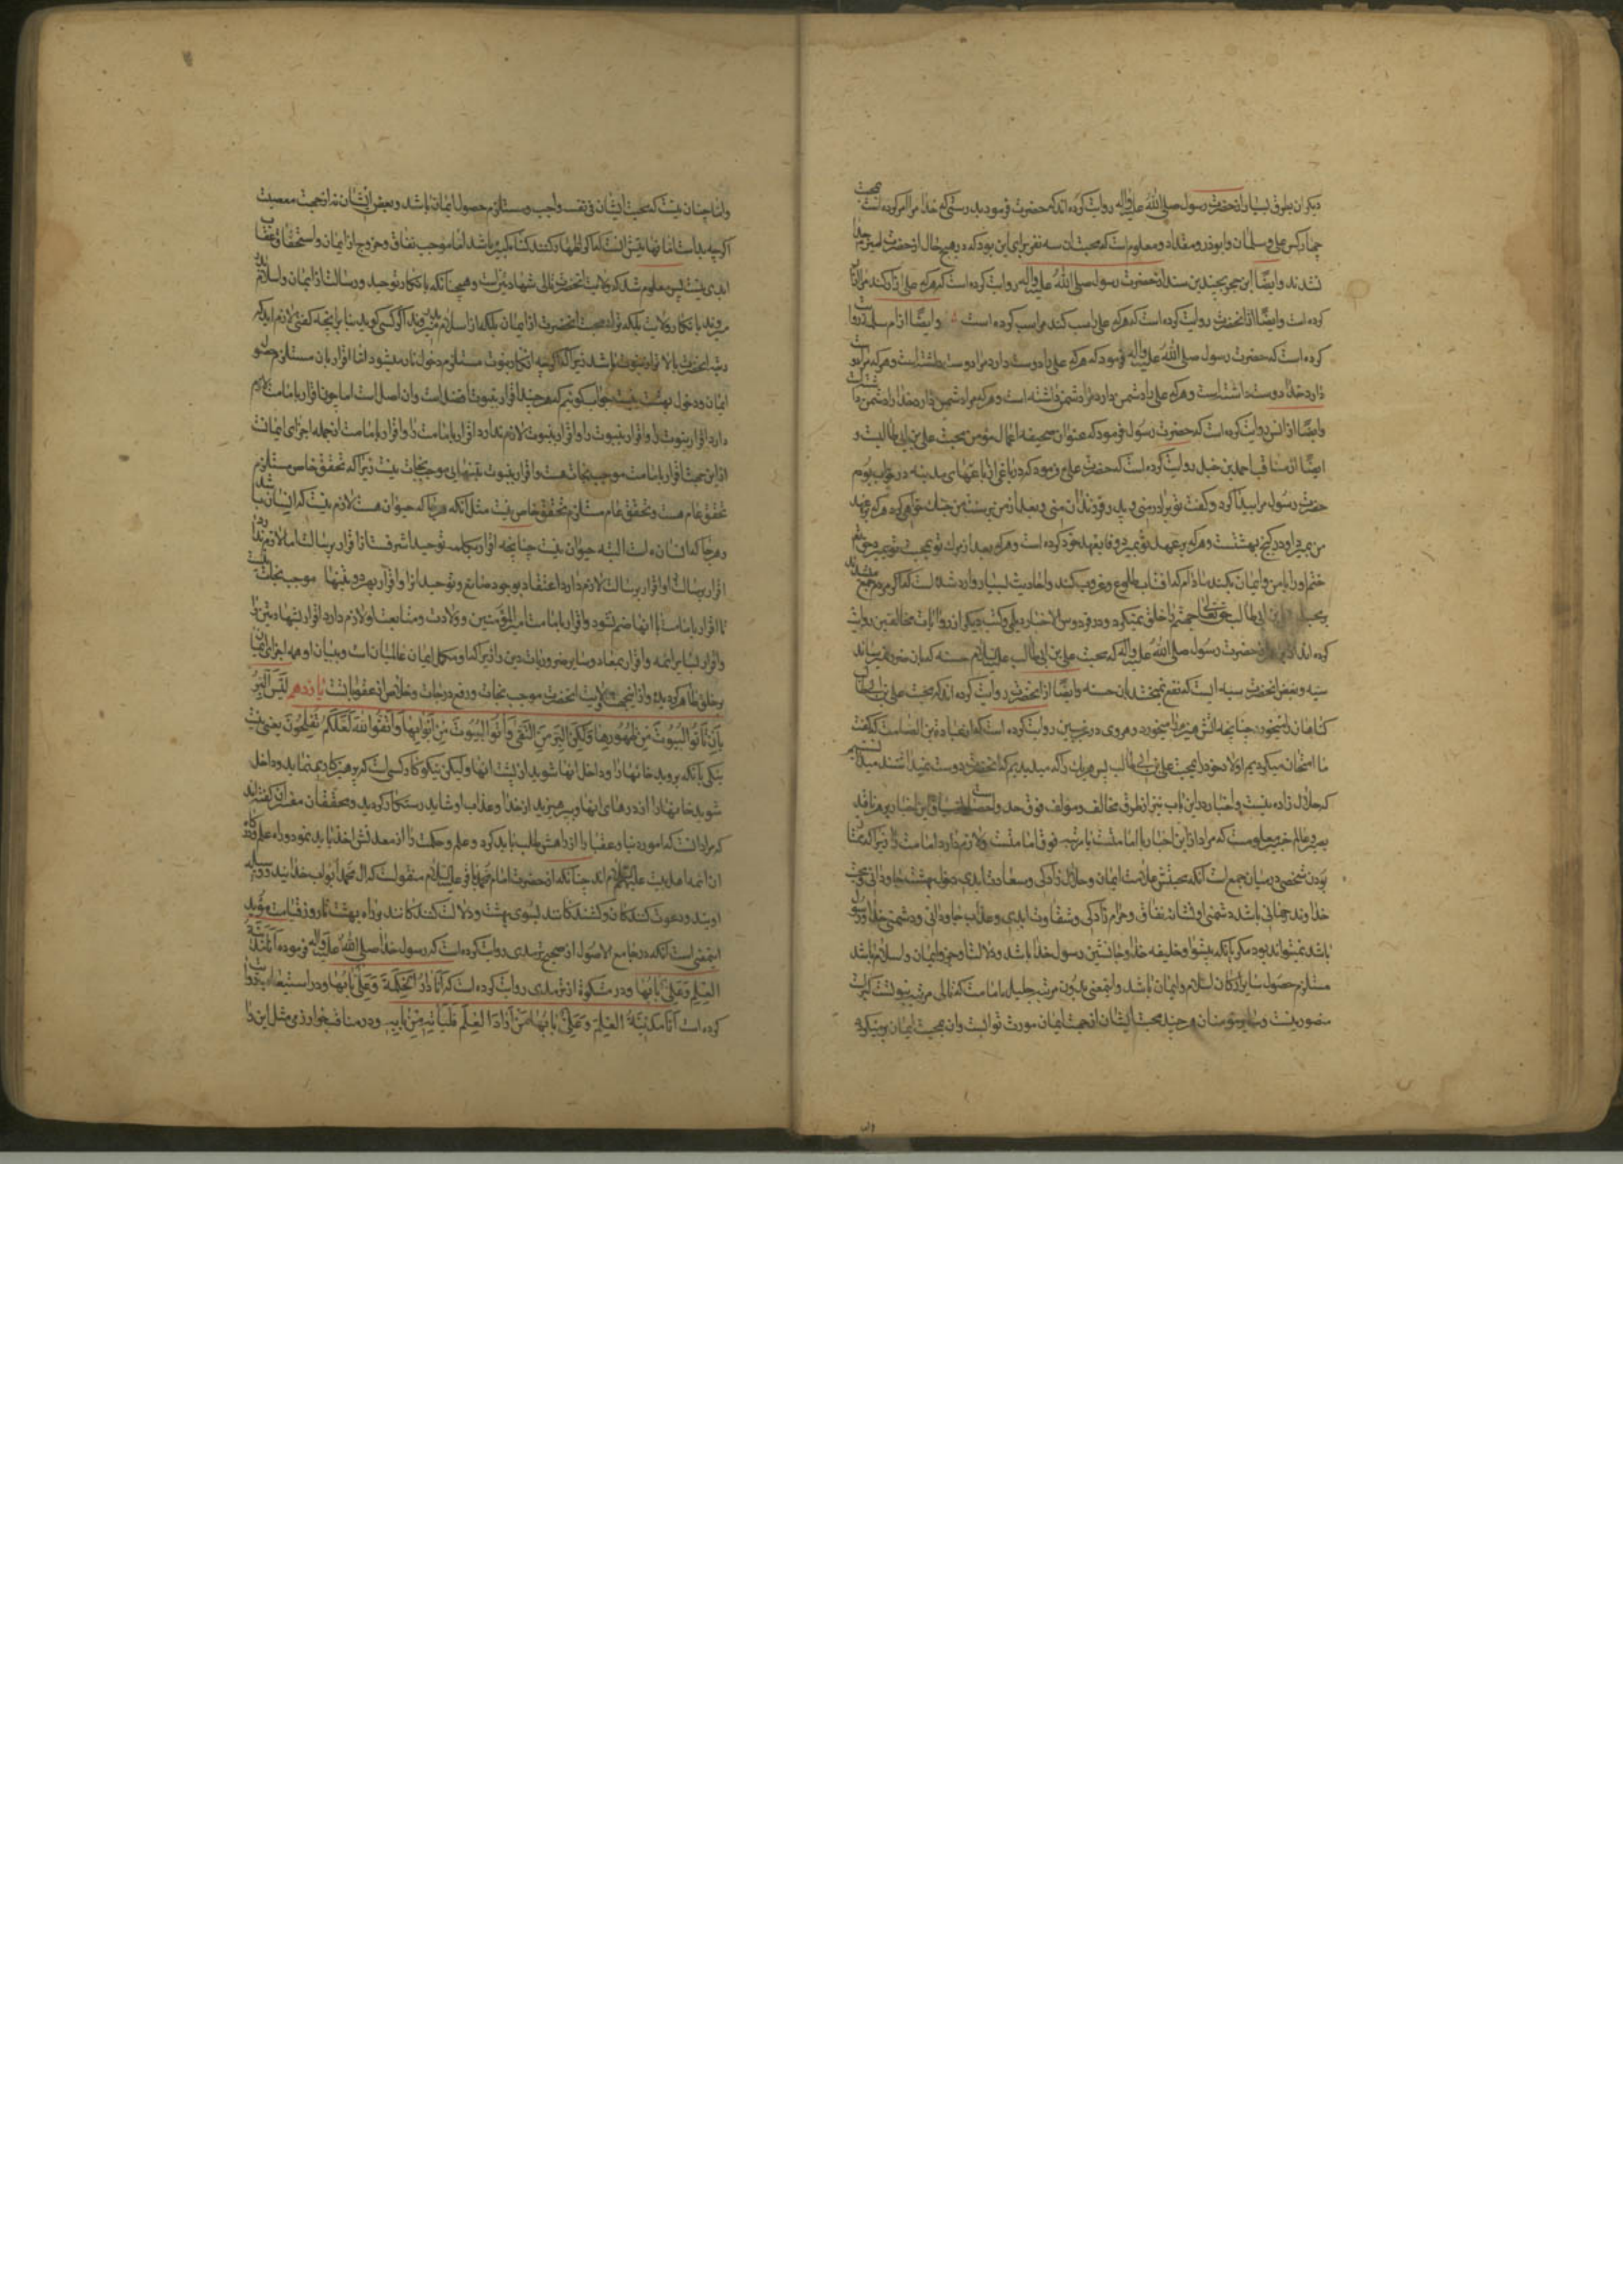 دیکران بطرق بسیار از حضرت رسول صلی الله علیه واله روایت کرده اند که حضرت فرمود بدرستی که خدا مرا امر کرده است بمحبت
چهار کس علی و سلمان و ابوذر و مقداد و معلومست که محبت ان سه نفر برای این بود که در هیچ حال از حضرت امیر جدا
نشدند وایضا ابن حجر بچندین سند از حضرت رسول صلی الله علیه واله روایت کرده است که هرکه علی را ازار کند مرا ازار
کرده است وایضا از انحضرت روایت کرده است که هرکه علی را سب کند مرا سب کرده است وایضا از ام سلمه روایت
کرده است که حضرت رسول صلی الله علیه واله فرمود که هرکه علی را دوست دارد مرا دوست داشته است و هرکه مرا دوست
دارد خدا را دوست داشته است و هرکه علی را دشمن دارد مرا دشمن داشته است و هرکه مرا دشمن دارد خدا را دشمن داشته است
وایضا از انس روایت کرده است که حضرت رسول فرمود که عنوان صحیفه اعمال مؤمن محبت علی بن ابی طالبست و
ایضا از مناقب احمد بن حنبل روایت کرده است که حضرت علی فرمود که در باغی از باغهای مدینه در خواب بودم
حضرت رسول مرا بیدار کرد و کفت تو برادر منی و پدر فرزندان منی و بعد از من بر سنت من جنک خواهی کرد هرکه بر عهد
من بمیرد او در کنج بهشتست و هرکه بر عهد تو بمیرد وفا بعهد خود کرده است و هرکه بعد از مرک تو بمحبت تو بمیرد حق تعالی
ختم او را بامن و ایمان بکند مادام که افتاب طلوع و غروب کند و احادیث بسیار وارد شده است که اکر مردم جمع میشدند
بر محبت علی بن ابی طالب حق تعالی جهنم را خلق نمیکرد و در فردوس الاخبار دیلمی و کتب دیکر از روایات مخالفین روایت
کرده اند از حضرت رسول صلی الله علیه واله که محبت علی بن ابی طالب علیه السلام حسنه که بان ضرر نمیرساند
سیئه و بغض انحضرت سیئه ایست که نفع نمیبخشد بان حسنه وایضا از انحضرت روایت کرده اند که محبت علی بن ابی طالب
کناهان را میخورد چنانچه اتش هیزم را میخورد و هروی در غریبین روایت کرده است که از عبادة بن الصامت که کفت
ما امتحان میکردیم اولاد خود را بمحبت علی بن ابی طالب پس هر یک را که میدیدیم که انحضرت را دوست نمیداشتند میدانستیم
که حلال زاده نیست و اخبار در این باب نیز از طرق مخالف و مؤلف فوق حد و احصاست
بصیر و عالم خبیر معلومست که مراد از این اخبار یا امامتست یا مرتبه فوق امامتست ولازم دارد امامت را زیرا که ممتاز
بودن شخصی در میان جمع است انکه محبتش علامت ایمان و حلال زادکی و سعادت ابدی دخول بهشت جاودانی و محبت
خداوند جهانی باشد دشمنی او نشان نفاق و حرام زادکی و شقاوت ابدی و عذاب جاودانی و دشمنی خدا و رسول
باشد نمیتواند بود مکر بانکه پیشوا و خلیفه خدا و جانشین رسول خدا باشد و ولایت او جزو ایمان و اسلام باشد
مستلزم حصول سایر ارکان اسلام و ایمان باشد و اینمعنی بدون مرتبه جلیله امامت که تالی مرتبه نبوتست
متصور نیست و سایر مؤمنان هرچند محبت ایشان از جهت ایمان مورث ثوابست وان بمحبت ایمان
واما چنان نیست که محبت ایشان فی نفسه واجب و مستلزم حصول ایمان باشد و بغض ایشان نه از جهت معصیت
اکرچه بد است اما نهایتش انست که اکر اظهار کنند کناه کبیره باشد اما موجب نفاق و خروج از ایمان و استحقاق عقاب
ابدی نیست پس معلوم شد که ولایت انحضرت تالی شهادتین است و همچنانکه بانکار توحید و رسالت از ایمان و اسلام بدر
میروند بانکار ولایت بلکه ترک محبت انحضرت از ایمان بلکه از اسلام بدر میروند اکر کسی کوید بنابر انچه کفتی لازم اید که
رتبه انحضرت بالاتر از نبوت باشد زیرا که اکرچه انکار نبوت مستلزم دخول نار میشود اما اقرار بان مستلزم حصول
ایمان و دخول بهشت نیست جواب کوئیم که هرچند اقرار بنبوت افضل است وان اصل است اما چون اقرار بامامت لازم
دارد اقرار بنبوت را و اقرار بنبوت لازم ندارد اقرار بامامت را و اقرار بامامت از جمله اجزای ایمانست
از این جهت اقرار بامامت موجب نجات هست و اقرار بنبوت بتنهایی موجب نجات نیست زیرا که تحقق خاص مستلزم
تحقق عام هست و تحقق عام مستلزم تحقق خاص نیست مثل انکه هرجا که حیوان هست لازم نیست که انسان باشد
و هرجا که انسان است البته حیوان نیست چنانچه اقرار بکلمه توحید اشرفست از اقرار برسالت اما لازم ندارد
اقرار برسالت را و اقرار برسالت لازم دارد اعتقاد بوجود صانع و توحید او را و اقرار بهر دو بتنهایی موجب نجات نیست
تا اقرار بامامت با انها ضم نشود و اقرار بامامت امیر المؤمنین و ولایت و متابعت او لازم دارد اقرار بشهادتین را
و اقرار بسایر ائمه و اقرار بمعاد و سایر ضروریات دین را زیرا که او مکمل ایمان عالمیان است و ببیان او همه اجزای ایمان
بر خلق ظاهر کردیده و از اینجهت ولایت انحضرت موجب نجات و رفع درجات و خلاص از عقوباتست یازدهم لَیْسَ الْبِرُّ
بِاَنْ تَأْتُوا الْبُیُوتَ مِنْ ظُهُورِهَا وَلٰکِنَّ الْبِرَّ مَنِ اتَّقٰی وَأْتُوا الْبُیُوتَ مِنْ اَبْوَابِهَا وَاتَّقُوا اللهَ لَعَلَّکُمْ تُفْلِحُونَ یعنی نیست
نیکی بانکه بروید خانها را و داخل انها شوید از پشت انها ولیکن نیکو کار کسی است که پرهیزکاری نماید و داخل
شوید خانها را از درهای انها و بپرهیزید از خدا و عذاب او شاید رستکار کردید و محققان مفسران کفته اند
که مراد انست که امور دنیا و عقبا را از راهش طلب باید کرد و علم و حکمت را از معدنش اخذ باید نمود و راه علم
ان ائمه اهل بیت علیهم السلام اند چنانکه از حضرت امام محمد باقر علیه السلام منقولست که ال محمد ابواب خدایند و وسیله
اویند و دعوت کنندکان و کشندکانند بسوی بهشت و دلالت کنندکانند براه بهشت تا روز قیامت و مؤید
اینمعنی است انکه در جامع الاصول از صحیح ترمذی روایت کرده است که رسول خدا صلی الله علیه واله فرموده اَنَا مَدِینَةُ
الْعِلْمِ وَعَلِیٌّ بَابُهَا و در مشکوة از ترمذی روایت کرده است که اَنَا دَارُ الْحِکْمَةِ وَعَلِیٌّ بَابُهَا و در استیعاب روایت
کرده است اَنَا مَدِینَةُ الْعِلْمِ وَعَلِیٌّ بَابُهَا فَمَنْ اَرَادَ الْعِلْمَ فَلْیَأْتِهِ مِنْ بَابِهِ و در مناقب خوارزمی مثل این را